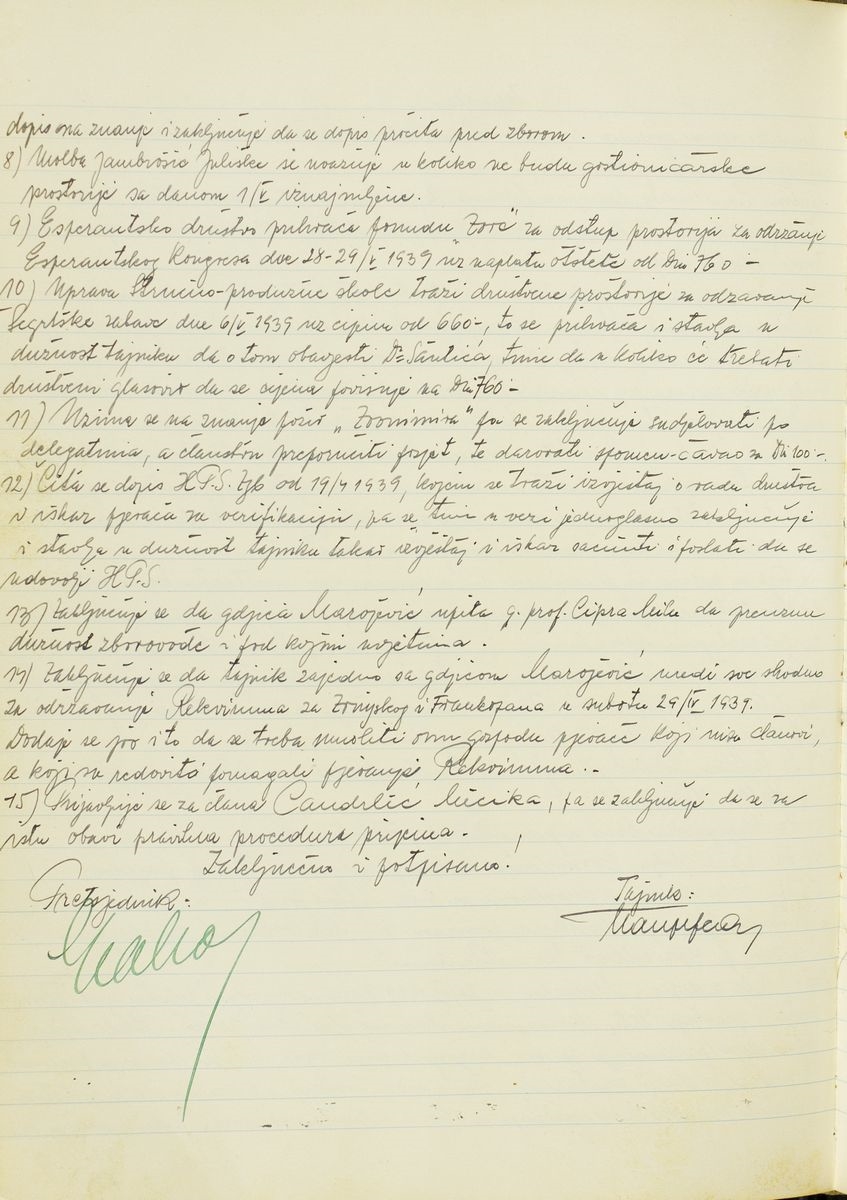 dopis na znanje i zaključuje da se dopis pročita pred zborom.
8) Molba Jambrošić Juliške se uvažuje u koliko ne budu gostioničarske
prostorije sa danom 1/V iznajmljene.
9) Esperantsko društvo prihvaća ponudu "Zore" za odstup prostorija za održanje
Esperantskog Kongresa dne 28-29/V 1939 uz naplatu otštete od Din 760.-
10) Uprava Stručno-produžne škole traži društvene prostorije za održavanje
Šegrtske zabave dne 6/V 1939 uz cijenu od 660.-, to se prihvaća i stavlja u
dužnost tajniku da o tom obavjesti Dr. Šantića, time da u koliko će trebati
društveni glasovir da se cijena povisuje na Din 760.-
11) Uzima se na znanje poziv „Zvonimira" pa se zaključuje sudjelovati po
delegatima, a članstvu preporučiti posjet, te darovati spomen-čavao za Din 100.-.
12) Čita se dopis H.P.S. Zgb od 19/4 1939, kojim se traži izvještaj o radu društva
i iskaz pjevača za verifikaciju, pa se tim u vezi jednoglasno zaključuje
i stavlja u dužnost tajniku takav izvještaj i iskaz sačiniti i poslati da se
udovolji H.P.S.
13) Zaključuje se da gdjica Marojević upita g. prof. Cipra Mila da preuzme
dužnost zborovođe i pod kojim uvjetima.
14) Zaključuje se da tajnik zajedno sa gdjicom Marojević uredi sve shodno
za održavanje Rekvimuma za Zrinjskog i Frankopana u subotu 29/IV 1939.
Dodaje se još i to da se treba umoliti onu gospodu pjevače koji nisu članovi,
a koji su redovito pomagali pjevanje Rekvimuma.-
15) Prijavljuje se za člana Čandrlić Micika, pa se zaključuje da se za
istu obavi pravilna procedura prijema.
Zaključeno i potpisano!
Pretsjednik:
Tajnik: